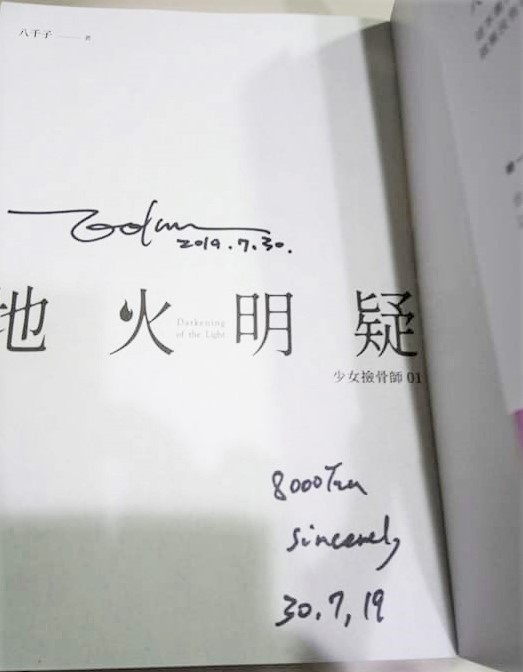 八千子 著
2019.7.30.
地火明疑
Darkening
of the Light
少女撿骨師 01
8000Tzu
sincerely
30,7,19